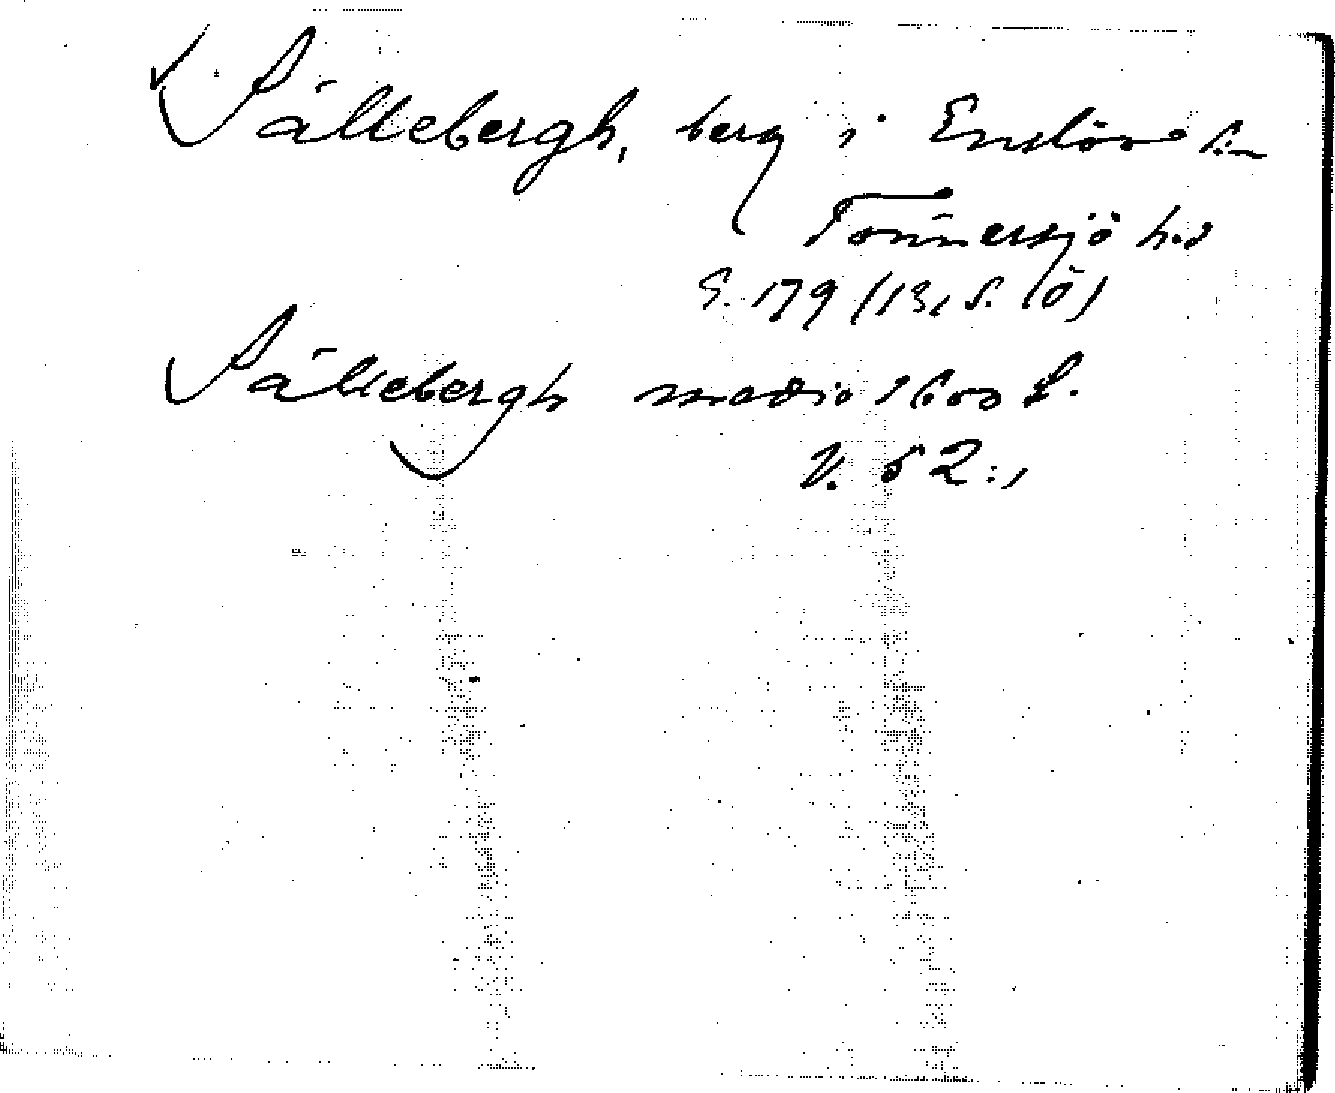 Sällebergh, berg i Enslövs sn
Tönnersjö hd
S. 179 (13, S. Ö)
Sällebergh medio 1600 t.
V. 52:1